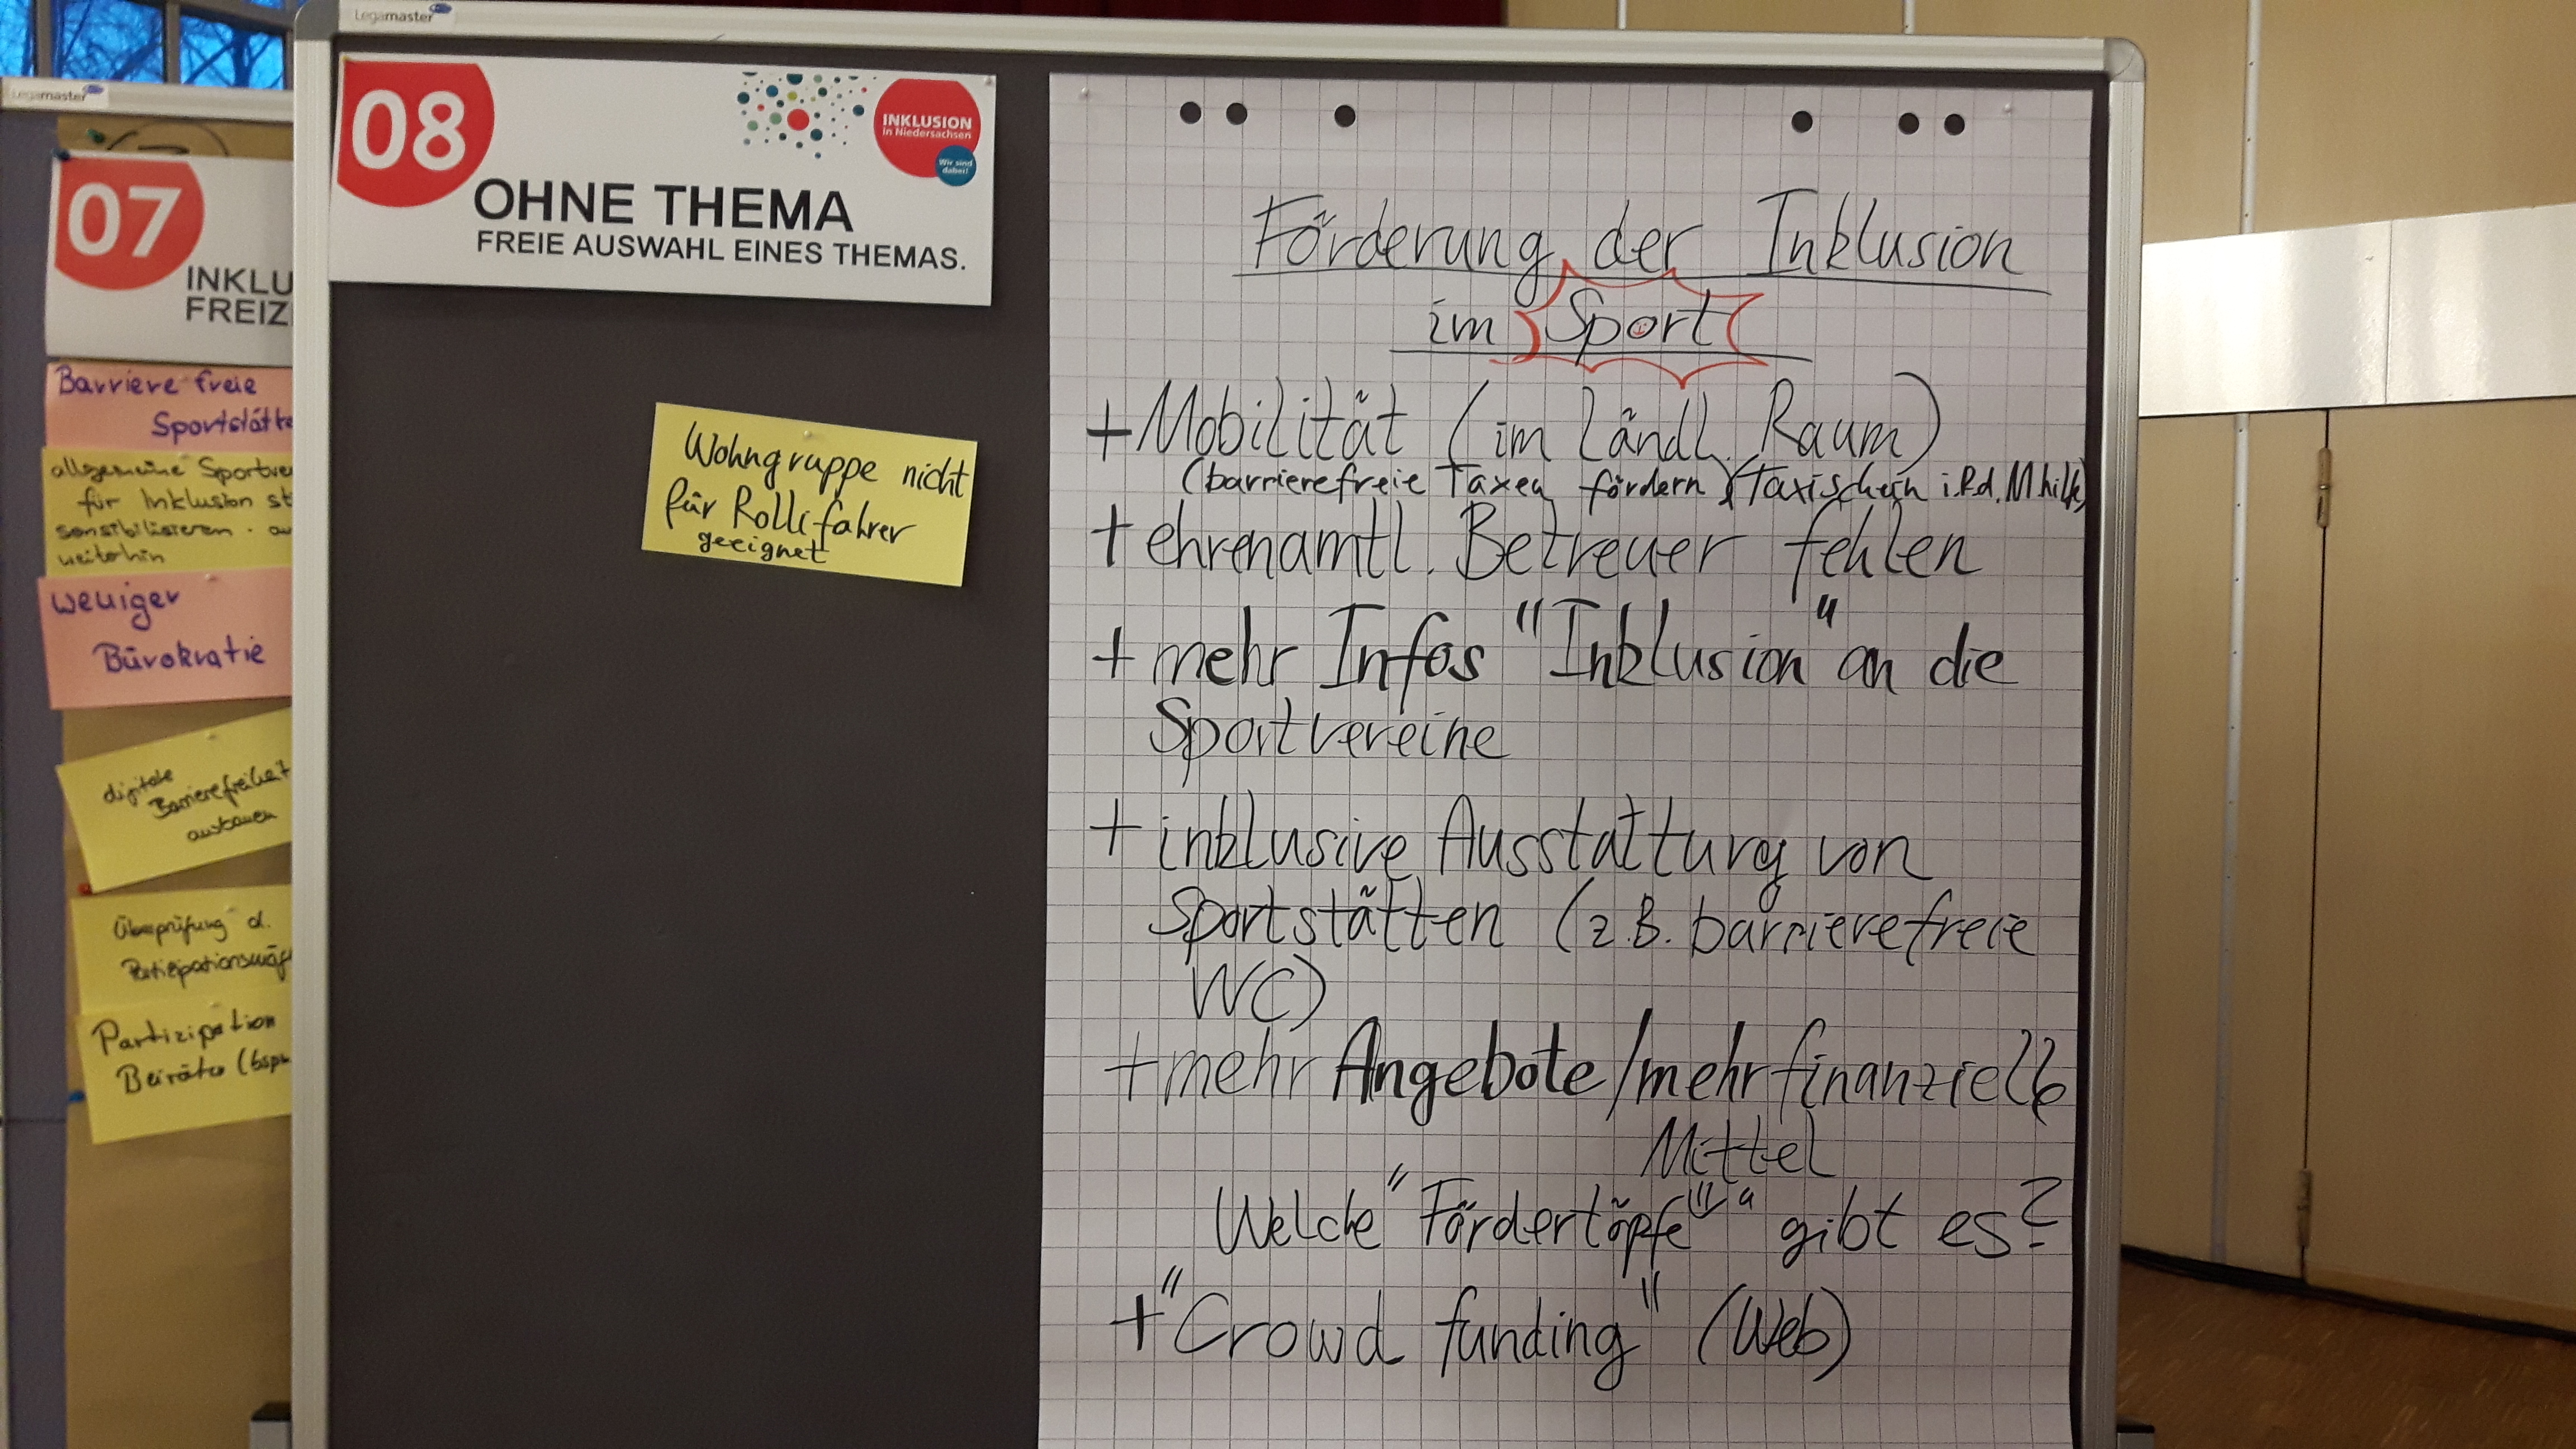 Legamaster
Legamaster
07
INKLU
FREIZ
Barriere freie
Sportstätte
allgemeine Sportve
für Inklusion st
sensibilisieren - au
weiterhin
weniger
Bürokratie
digitale
Barrierefreiheit
ausbauen
Überprüfung d.
Partizipation
Beiräte (bspw
08
INKLUSION
in Niedersachsen
Wir sind
dabei!
OHNE THEMA
FREIE AUSWAHL EINES THEMAS.
Wohngruppe nicht
für Rollifahrer
geeignet
Förderung der Inklusion
im Sport
+ Mobilität (im ländl. Raum)
(barrierefreie Taxen fördern) (Taxischein
+ ehrenamtl. Betreuer fehlen
+ mehr Infos "Inklusion" an die
Sportvereine
+ inklusive Ausstattung von
Sportstätten (z.B. barrierefreie
WC)
+ mehr Angebote/mehr finanzielle
Mittel
Welche "Fördertöpfe" gibt es?
+ "Crowd funding" (Web)